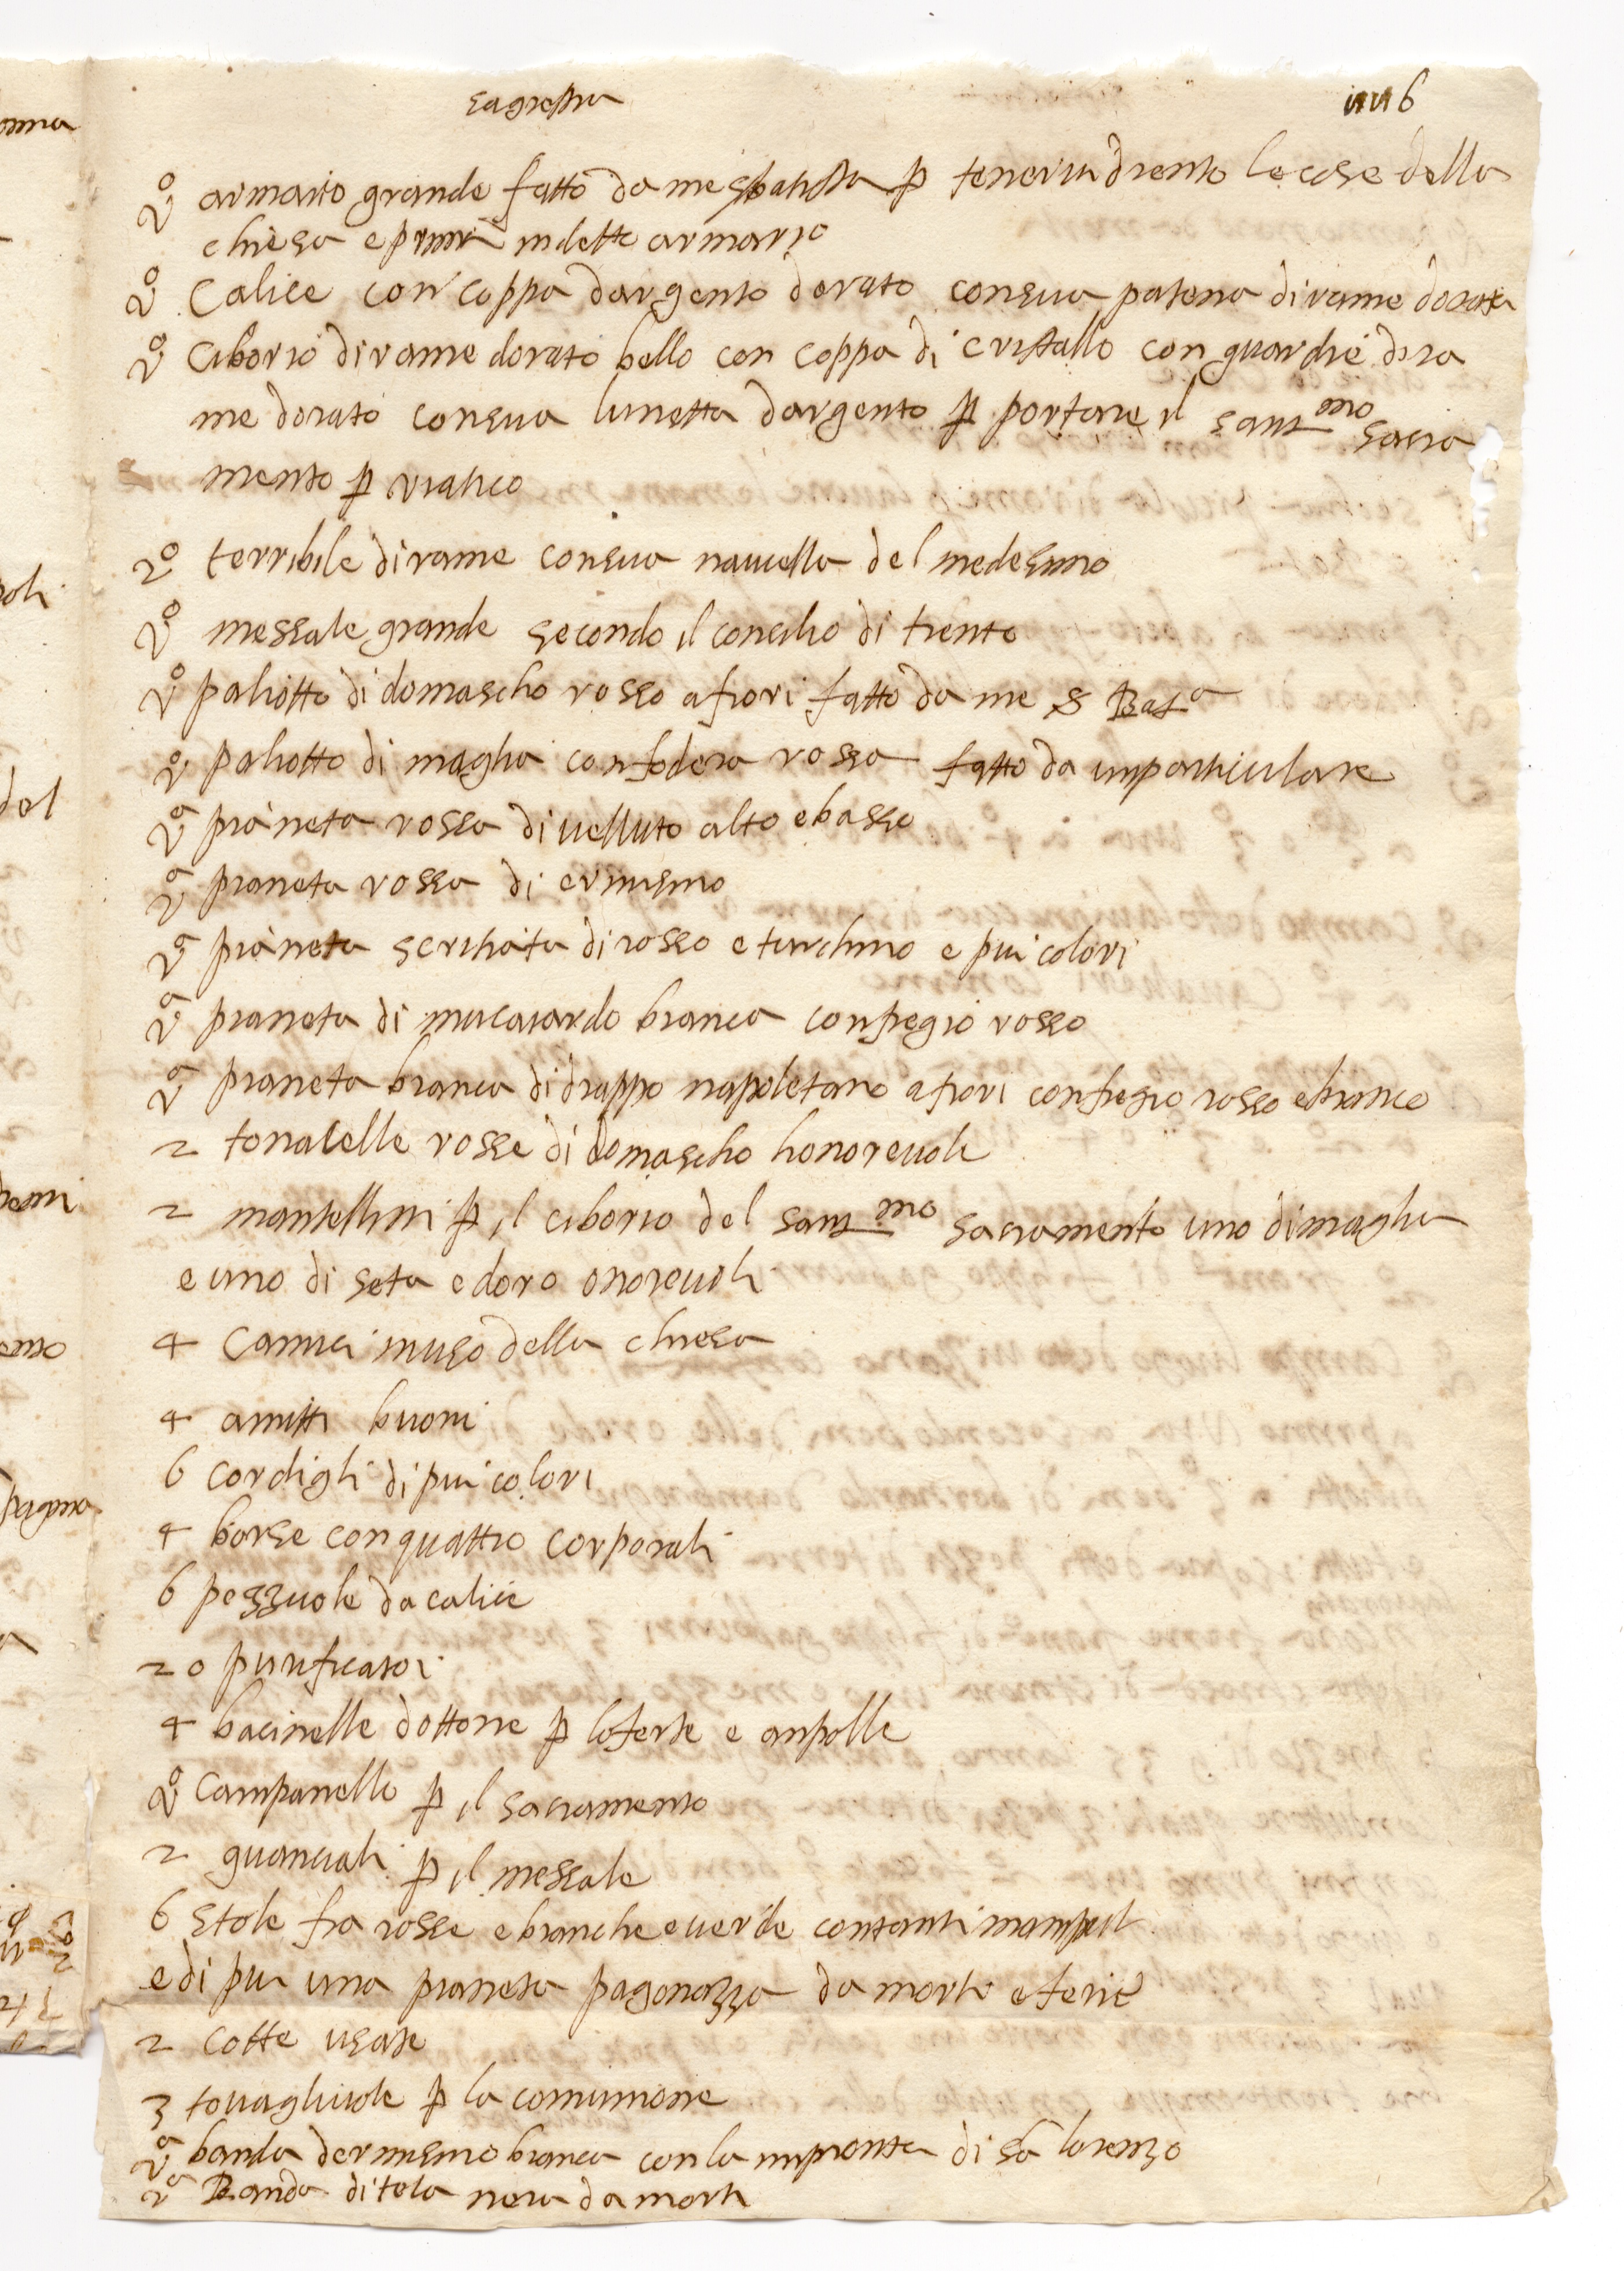 sagrestia
6
vº armario grande fatto da me s batista p tenervi drento le cose della
chiesa e prima in detto armario
vº Calice con coppa dargento dorato con sua patena di rame dorata
vº Ciborio di rame dorato bello con coppa di cristallo con guardie di ra
me dorato con sua lunetta dargento p portare il santmo sacra
mento p viatico
vº terribile di rame con sua navicella del medesimo
vº messale grande secondo il concilio di trento
vº paliotto di domascho rosso a fiori fatto da me s Bata
vº paliotto di maglia con fodera rossa fatto da un particulare
vª pianeta rossa di velluto alto e basso
vª pianeta rossa di ermisino
vª pianeta scritiata di rosso e turchino e piu colori
vª pianeta di mucaiardo bianca con fregio rosso
vª pianeta bianca di drappo napoletano a fiori con fregio rosso e bianco
2 tonacelle rosse di domascho honorevole
2 mantellini p il ciborio del santmo sacramento uno di maglia
e uno di seta e doro onorevoli
4 Camici in uso della chiesa
4 amitti buoni
6 cordigli di piu colori
4 borse con quattro corporali
6 pezzuole da calice
20 purificatoi
4 bacinelle dottone p loferte e anpolle
vº Campanello p il sacramento
2 guanciali p il messale
6 stole fra rosse e bianche e verde con tanti manipuli
e di piu una pianeta pagonazza da morti e ferie
2 cotte usate
3 tovagliuole p la comunione
vª banda dermisino bianca con la impronta di sā lorenzo
vª Banda di tela nera da morti